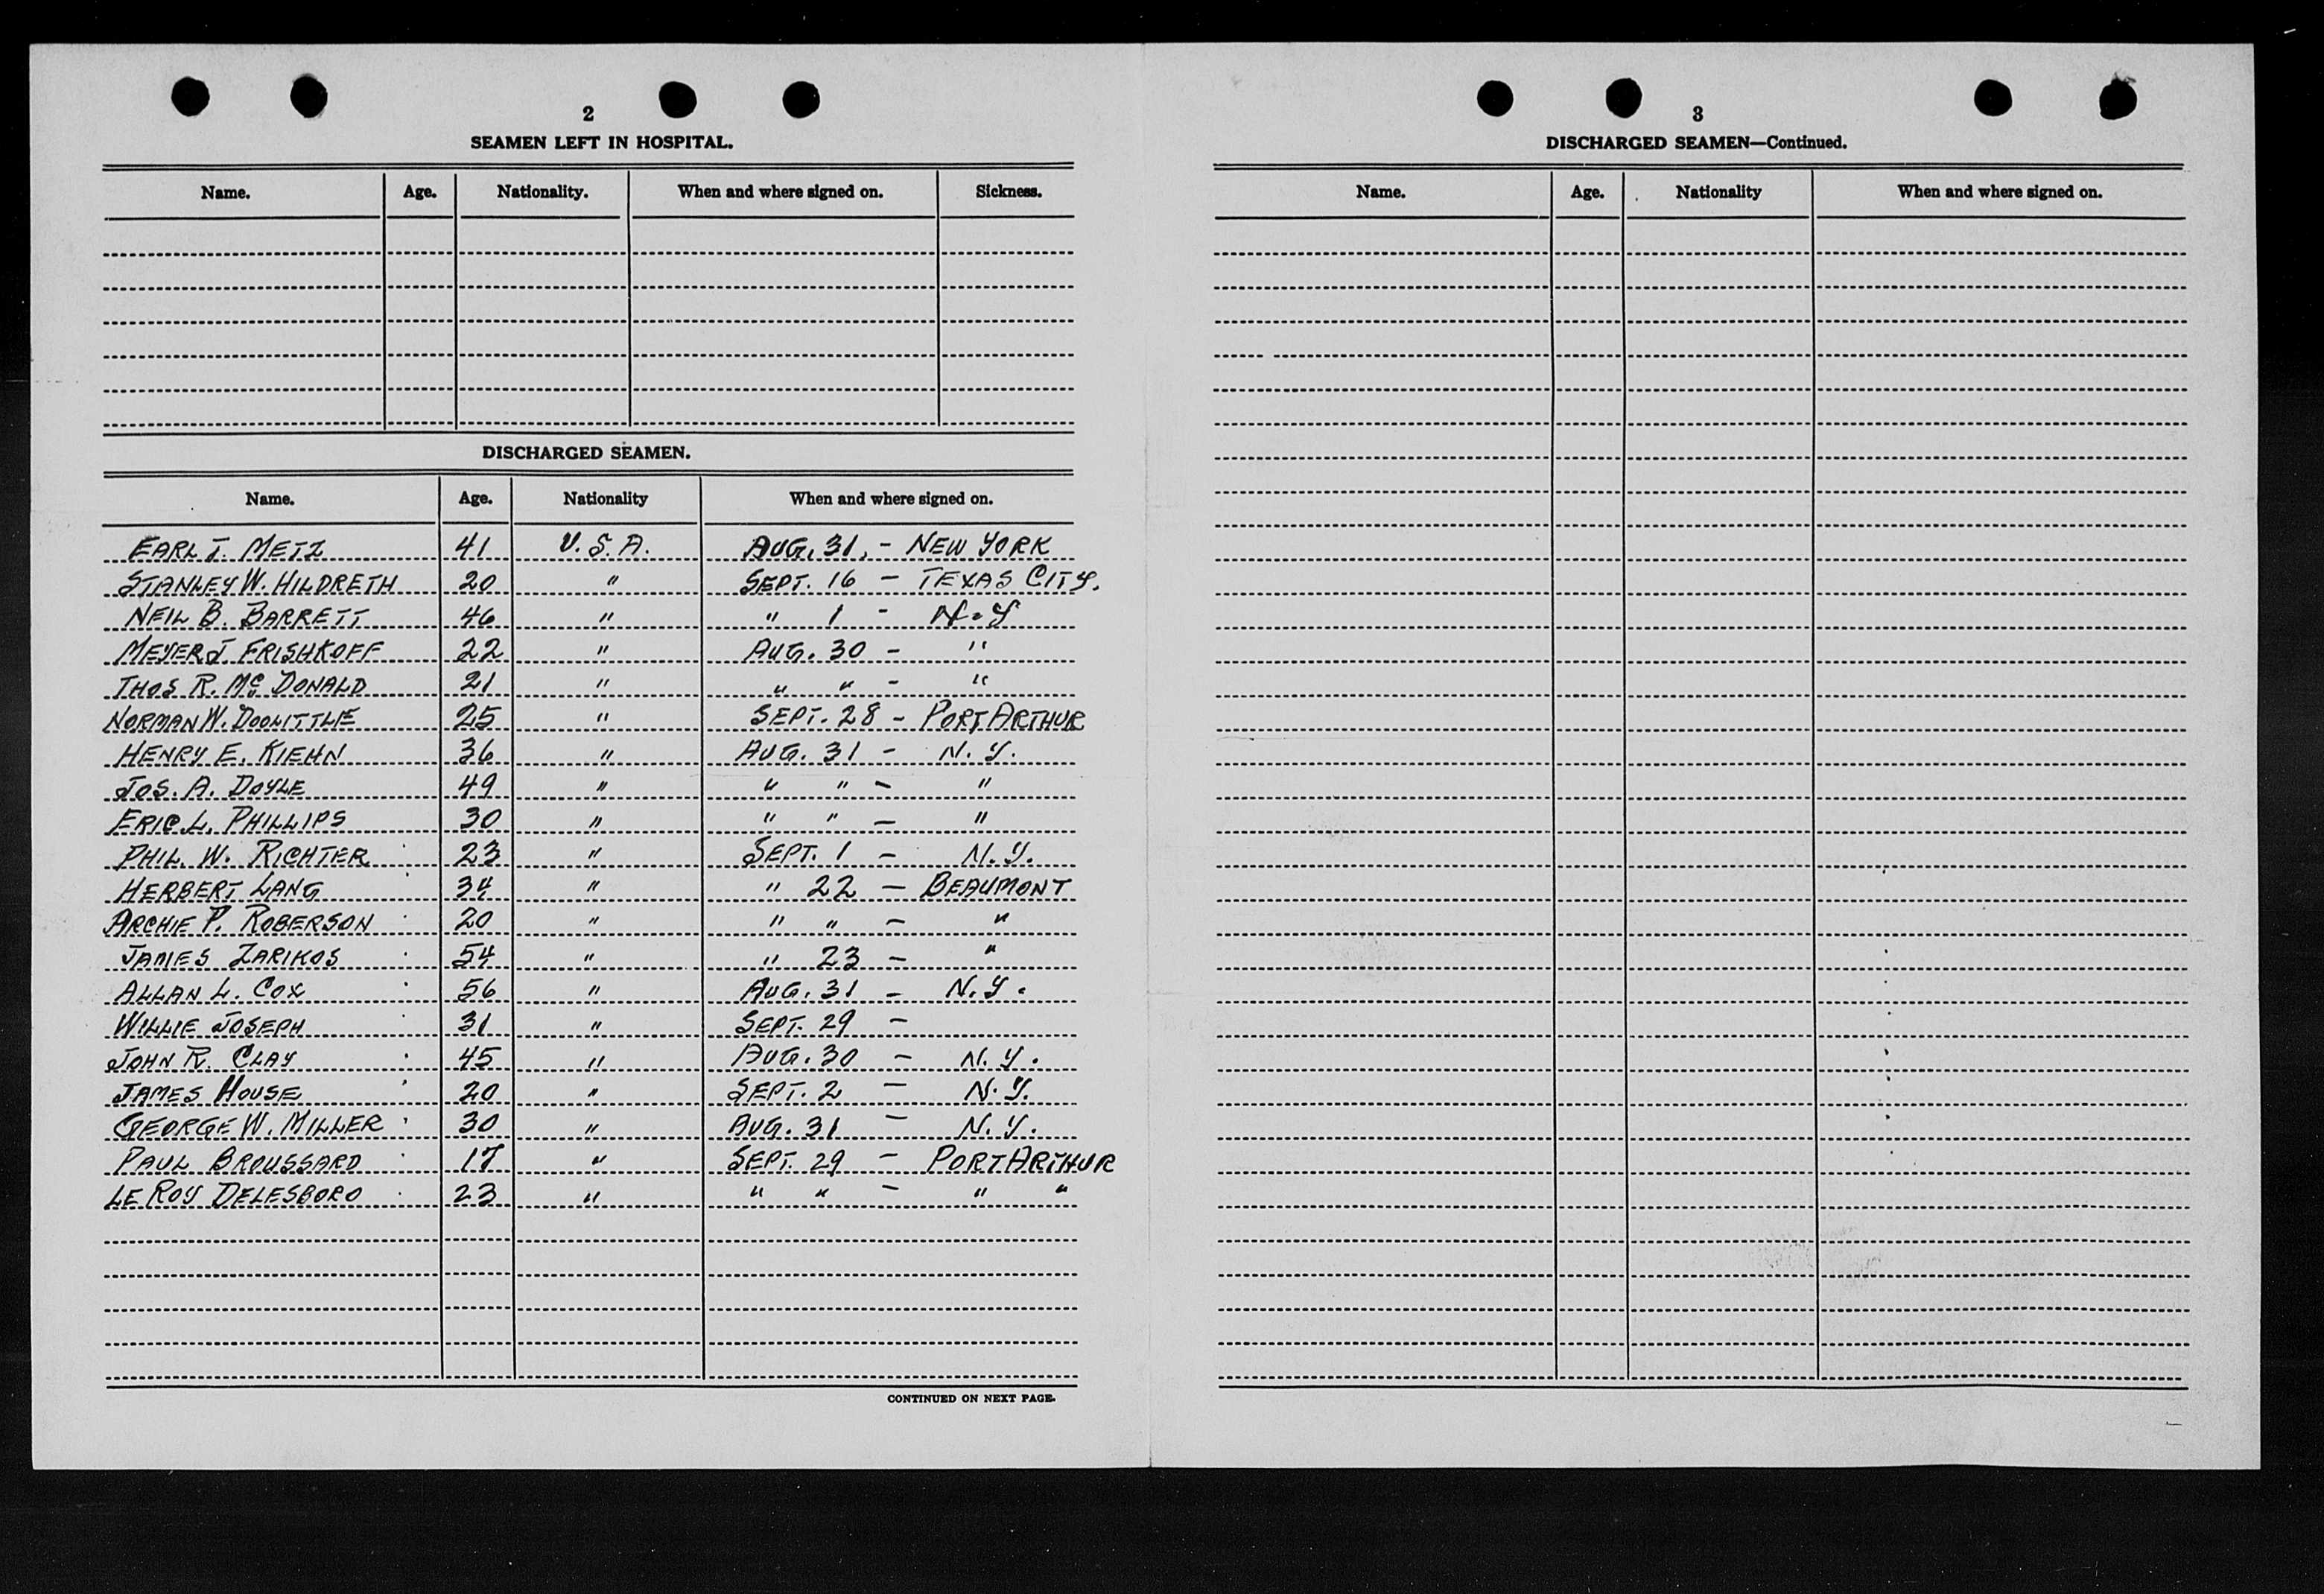 2
SEAMEN LEFT IN HOSPITAL.
Name. Age. Nationality. When and where signed on. Sickness.
DISCHARGED SEAMEN.
Name. Age. Nationality When and where signed on.
EARL T. METZ 41 U.S.A. AUG. 31, - NEW YORK
STANLEY W. HILDRETH 20 " SEPT. 16 - TEXAS CITY.
NEIL B. BARRETT 46 " " 1 - N.Y
MEYER J. FRISHKOFF 22 " AUG. 30 - "
THOS R. Mc DONALD 21 " " " - "
NORMAN W. DOOLITTLE 25 " SEPT. 28 - PORT ARTHUR
HENRY E. KIEHN 36 " AUG. 31 - N.Y.
JOS. A. DOYLE 49 " " " - "
ERIC L. PHILLIPS 30 " " " - "
PHIL. W. RICHTER 23 " SEPT. 1 - N.Y.
HERBERT LANG 34 " " 22 - BEAUMONT
ARCHIE P. ROBERSON 20 " " " - "
JAMES ZARIKOS 54 " " 23 - "
ALLAN L. COX 56 " AUG. 31 - N.Y.
WILLIE JOSEPH 31 " SEPT. 29 -
JOHN R. CLAY 45 " AUG. 30 - N.Y.
JAMES HOUSE 20 " SEPT. 2 - N.Y.
GEORGE W. MILLER 30 " AUG. 31 - N.Y.
PAUL BROUSSARD 17 " SEPT. 29 - PORT ARTHUR
LE ROY DELESBORO 23 " " " - " "
CONTINUED ON NEXT PAGE.
3
DISCHARGED SEAMEN—Continued.
Name. Age. Nationality When and where signed on.